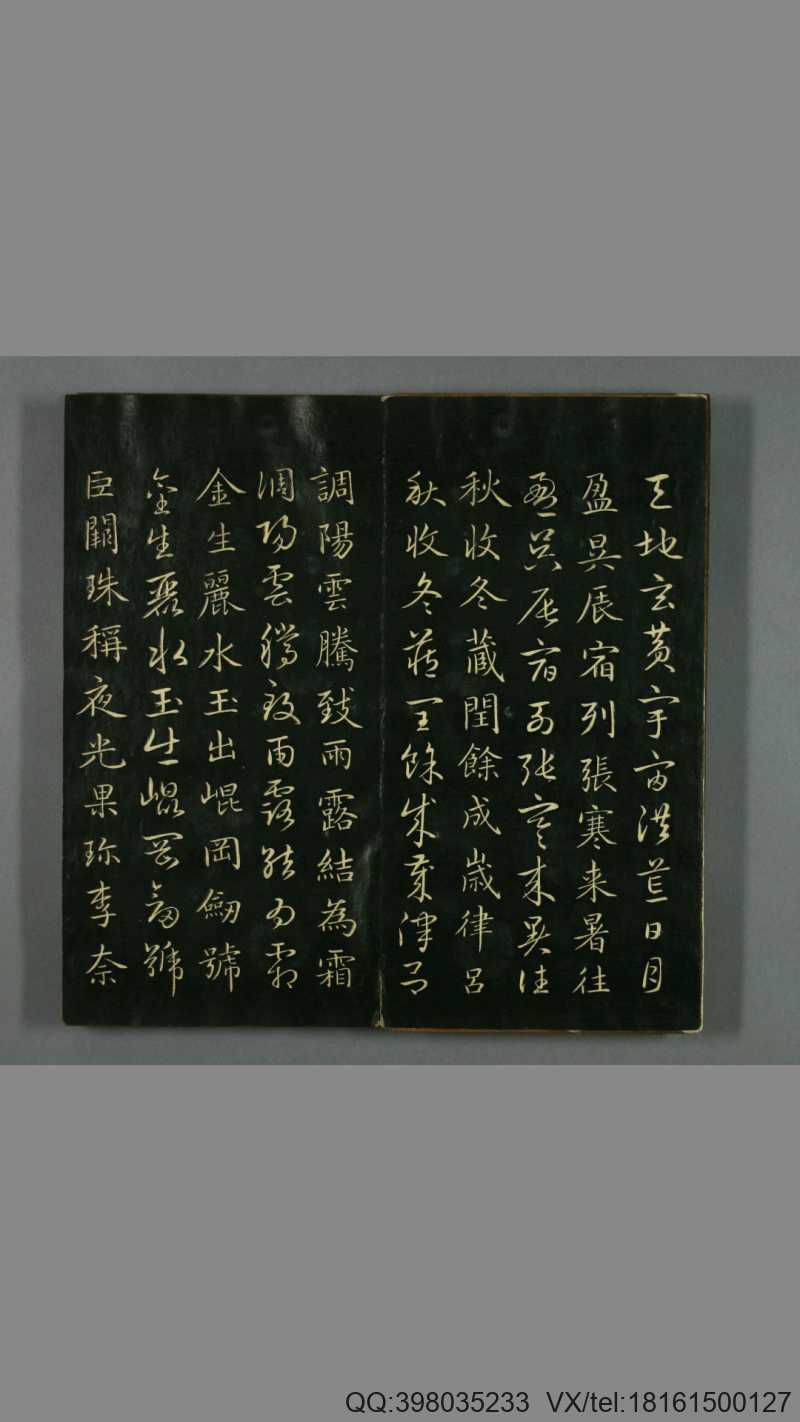 天地玄黃宇宙洪荒日月
盈昃辰宿列張寒来暑往
盈昃辰宿列張寒来暑往
秋收冬藏閏餘成歳律呂
秋收冬藏閏餘成歳律呂
調陽雲騰致雨露結為霜
調陽雲騰致雨露結為霜
金生麗水玉出崐岡劒號
金生麗水玉出崐岡劒號
巨闕珠稱夜光果珎李奈
QQ:398035233 VX/tel:18161500127